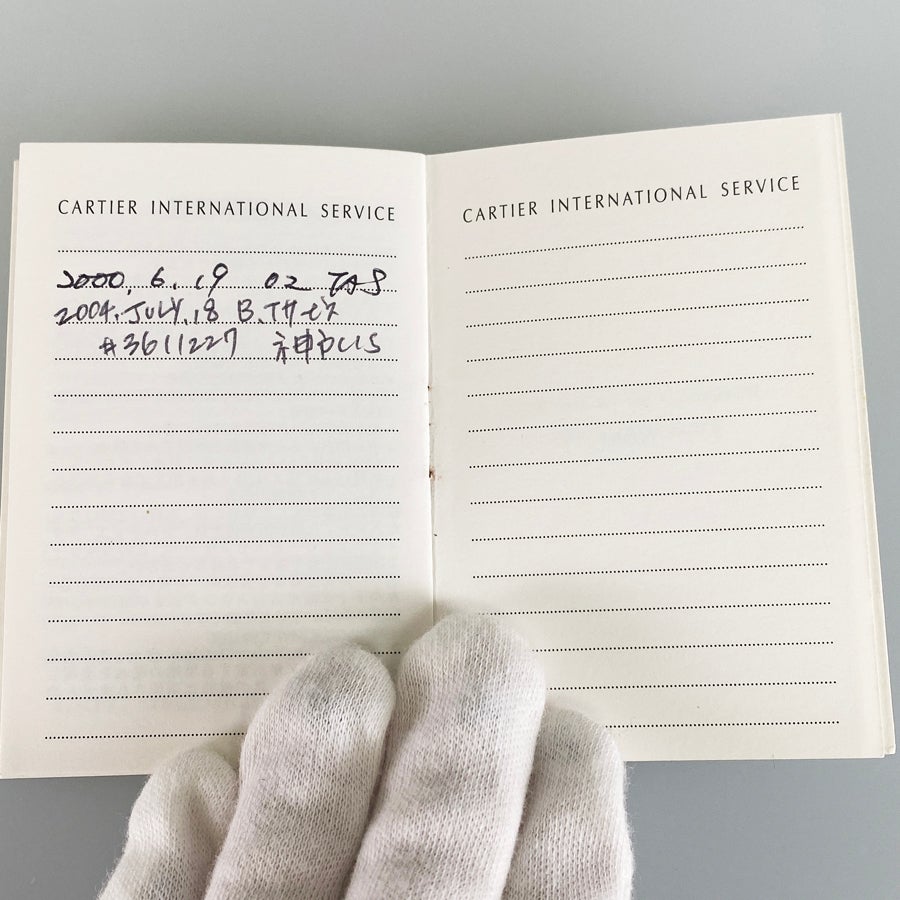 CARTIER INTERNATIONAL SERVICE
2000. 6. 19 02 TAS
2004. JULY. 18 B.
#3611227
CARTIER INTERNATIONAL SERVICE